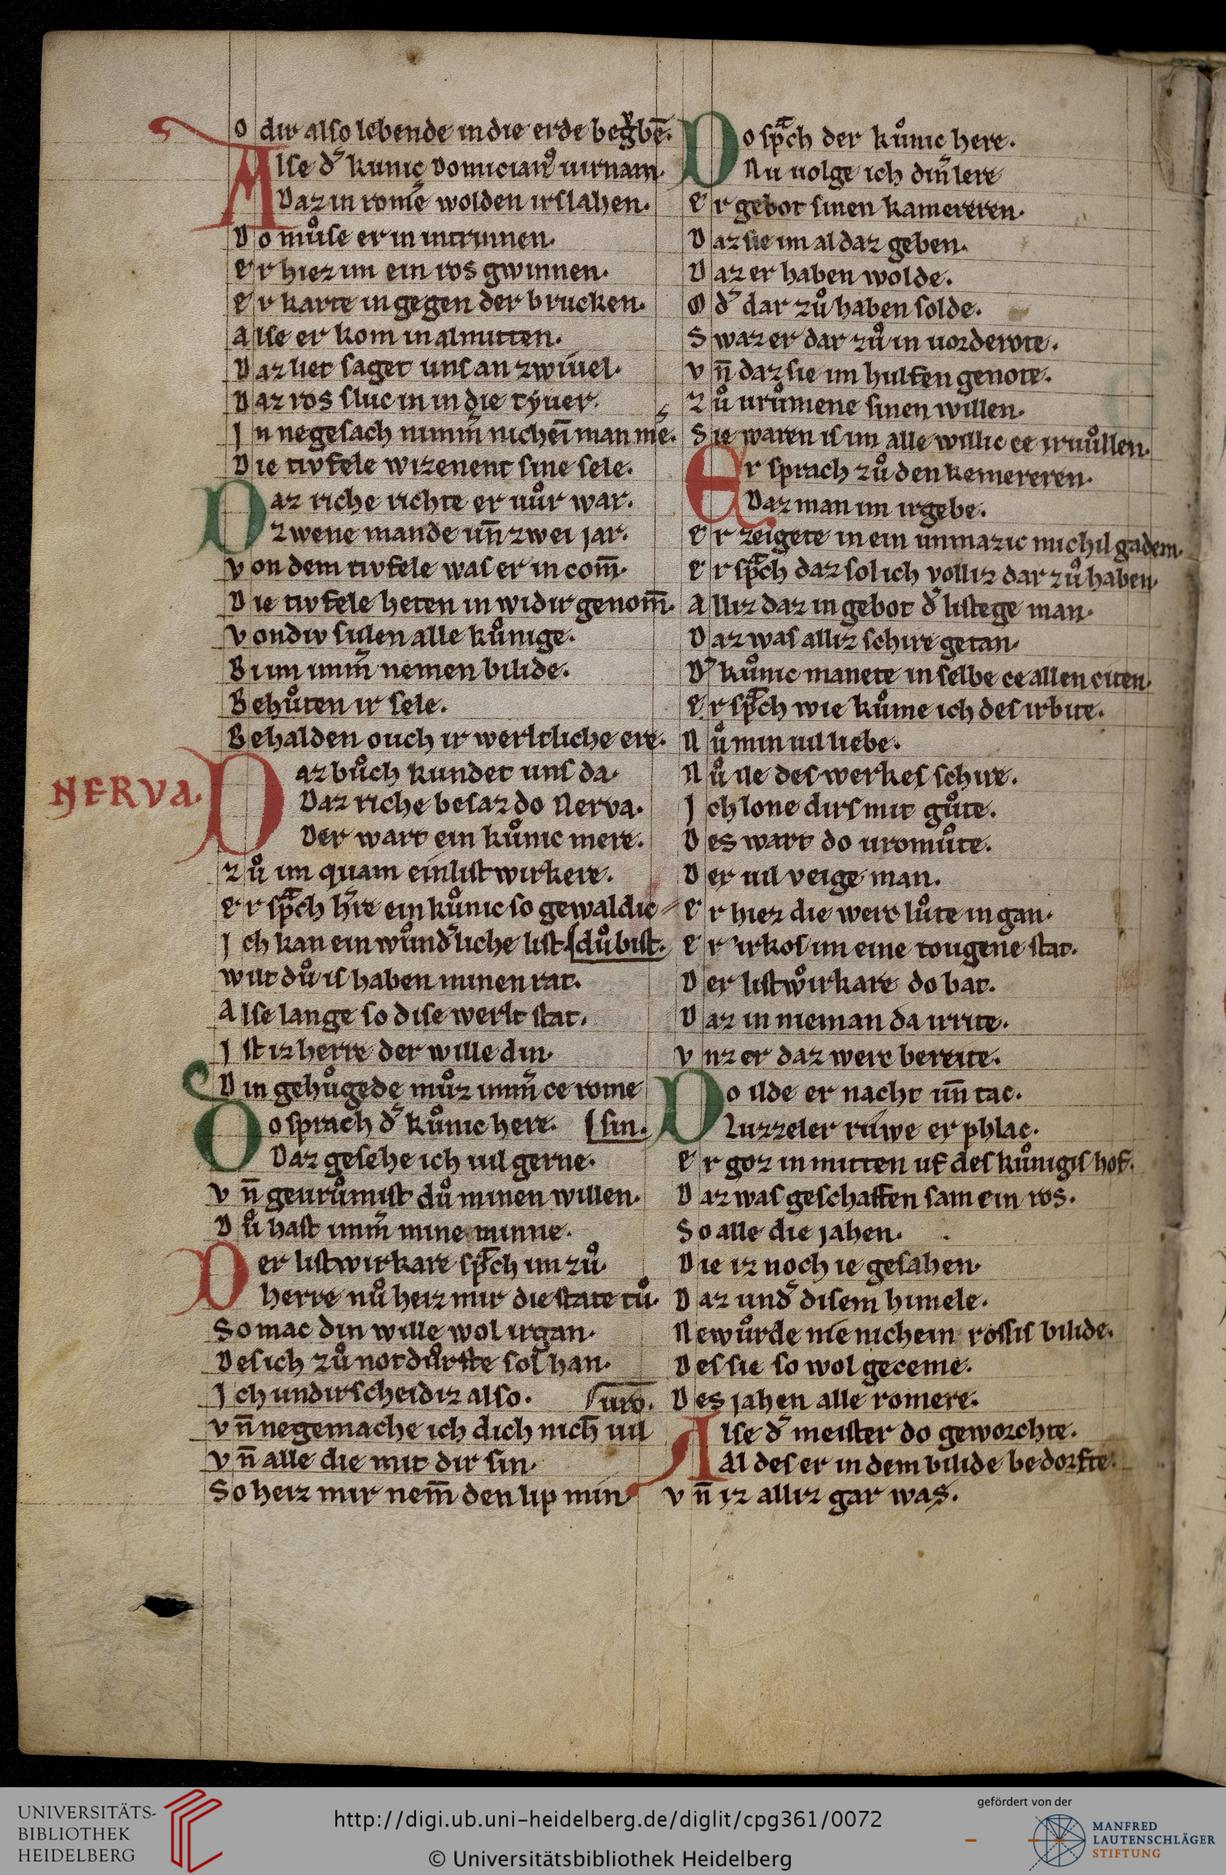 o dir also lebende in die erde begͮbē.
Alse d᷑ kunic Domicianꝰ uirnam.
Daz in rom̃e wolden irslahen.
Do můse er in intrinnen.
er hiez im ein ros gwinnen.
er karte in gegen der brucken.
Alse er kom in almitten.
Daz liet saget uns an zwiuel.
Daz ros sluc in in die tyuer.
In negesach nimm̃ nicheī man mē.
Die tivfele wizenent sine sele.
Daz riche richte er uůr war.
zwene mande uñ zwei jar.
von dem tivfele was er in com̄.
Die tivfele heten in widir genom̄.
von div sulen alle kůnige.
Bi im imm̃ nemen bilide.
Behůten ir sele.
Behalden ouch ir werltliche ere.
NERVA.
Daz bůch kundet uns da.
Daz riche besaz do Nerva.
Der wart ein kůnic mere.
zů im quam ein listwirkere.
er spͣch hr̃e ein kůnic so gewaldic
důbist.
Ich kan ein wůnd᷑liche list
wilt dů is haben minen rat.
Alse lange so dise werlt stat.
Ist iz herre der wille din.
Din gehůgede můz imm̃ ce rome
sin.
Do sprach d᷑ kůnic here.
Daz gesehe ich uil gerne.
vñ geurůmist dů minen willen.
Dů hast imm̃ mine minne.
Der listwirkare spͣch im zů.
herre nů heiz mir die state tů.
So mac din wille wol irgan.
Des ich zů notdůrfte sol han.
Ich undirscheidiz also.
uro.
vñ negemache ich dich nich̄ uil
vñ alle die mit dir sin.
So heiz mir nem̄ den lip min
Do spͣch der kůnic here.
Nu uolge ich din᷑ lere
er gebot sinen kamereren.
Daz sie im al daz geben.
Daz er haben wolde.
Od᷑ dar zů haben solde.
Swaz er dar zů in uorderote.
vñ daz sie im hulfen genote.
zů urůmene sinen willen.
Sie waren is im alle willic ce iruůllen.
Er sprach zů den kemereren.
Daz man im irgebe.
er zeigete in ein unmazic michil gadem.
er spͣch daz sol ich volliz dar zů haben.
alliz daz in gebot d᷑ listege man.
Daz was alliz schire getan.
D᷑ kůnic manete in selbe ce allen citen.
er spͣch wie kůme ich des irbite.
Nů min uil liebe.
Nů ile des werkes schire.
Ich lone dirs mit gůte.
Des wart do uromůte.
Der uil veige man.
er hiez die werc lůte in gan.
er irkos im eine tougene stat.
Der listwůrkare do bat.
Daz in nieman da irrite.
vnz er daz werc bereite.
Do ilde er nacht uñ tac.
Luzzeler růwe er phlac.
er goz in mitten uf des kůnigis hof.
Daz was geschaffen sam ein ros.
So alle die jahen.
Die iz noch ie gesahen.
Daz und᷑ disem himele.
Newůrde nie nichein rossis bilide.
Des sie so wol geceme.
Des jahen alle romere.
Alse d᷑ meister do geworchte.
Al des er in dem bilide bedorfte.
vñ iz alliz gar was.
UNIVERSITÄTS-
BIBLIOTHEK
HEIDELBERG
http://digi.ub.uni-heidelberg.de/diglit/cpg361/0072
© Universitätsbibliothek Heidelberg
gefördert von der
MANFRED
LAUTENSCHLÄGER
STIFTUNG